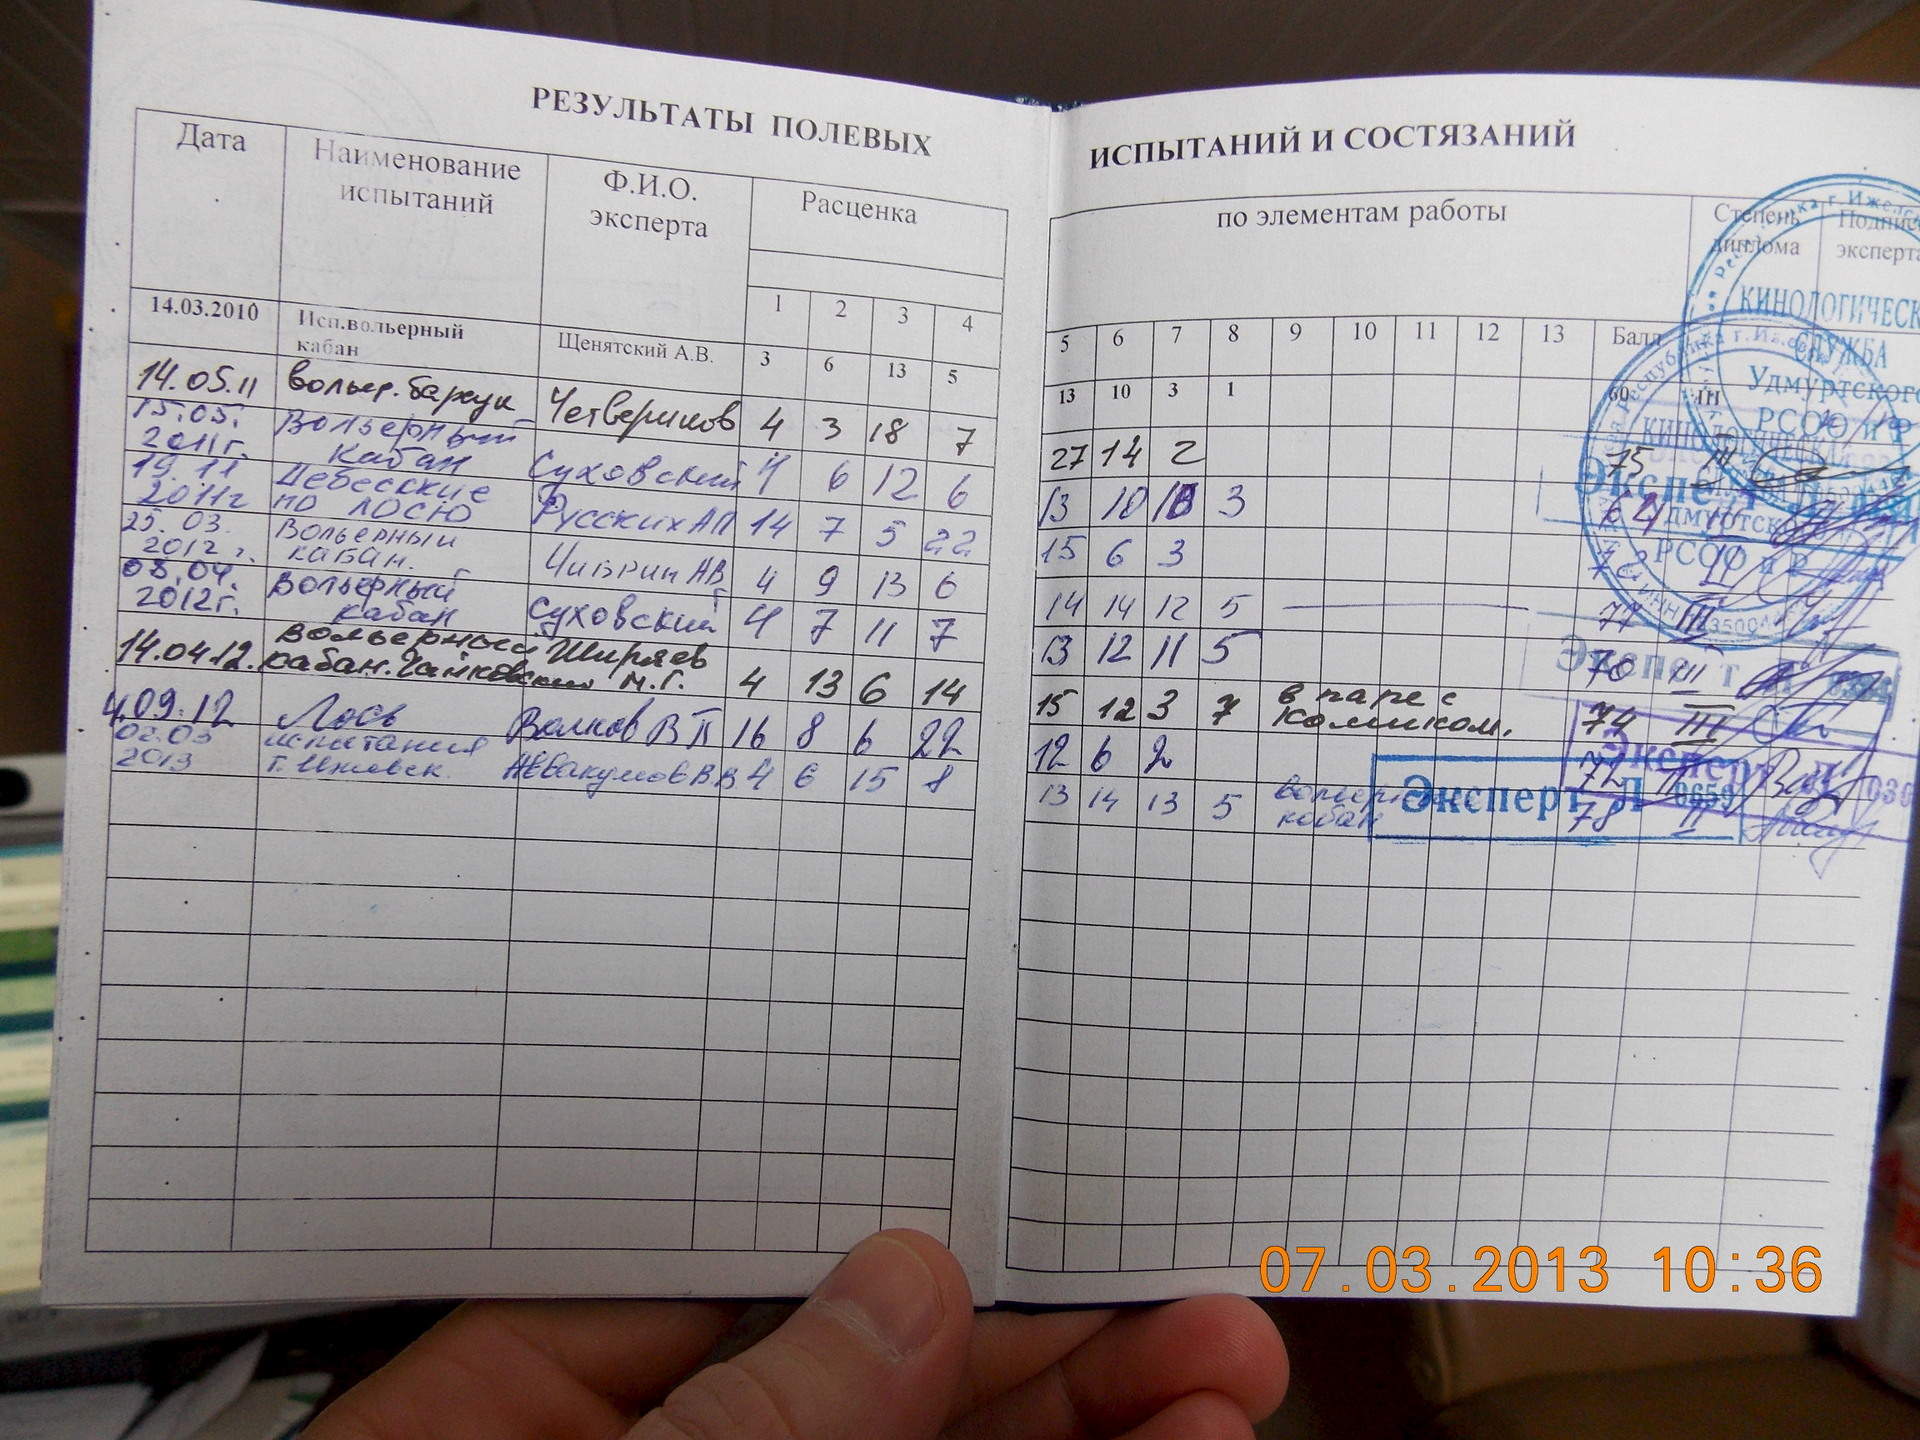 РЕЗУЛЬТАТЫ ПОЛЕВЫХ ИСПЫТАНИЙ И СОСТЯЗАНИЙ
Дата Наименование испытаний Ф.И.О. эксперта Расценка по элементам работы Степень диплома Подпис эксперта
1 2 3 4 5 6 7 8 9 10 11 12 13 Балл
14.03.2010 Исп.вольерный кабан Щенятский А.В. 3 6 13 5 13 10 3 1 60 III
14.05.11 вольер. барсук Четвериков 4 3 18 7 27 14 2 75 III
15.05. 2011г. Вольерный кабан Суховский 4 6 12 6 13 10 10 3 64 III
19.11 2011г Дебесские по лосю Русских АП 14 7 5 22 15 6 3 72 II
25.03. 2012г. Вольерный кабан. Чибрин АВ 4 9 13 6 14 14 12 5 77 III
08.04. 2012г. Вольерный кабан Суховский 4 7 11 7 13 12 11 5 70 III
14.04.12. Вольерный кабан. Чайковский Ширяев М.Г. 4 13 6 14 15 12 3 7 в паре с Комиком. 74 III
4.09.12 Лось Волков В П 16 8 6 22 12 6 2 72
02.03 2013 испытания г. Ижевск. Аввакумов В.В 4 6 15 8 13 14 13 5 вольерн кабан 78 II
КИНОЛОГИЧЕСК
СЛУЖБА
Удмуртского
РСОО и Р
РСОО и Р
Эксперт
Эксперт Л 030
Эксперт Л 0659
07.03.2013 10:36